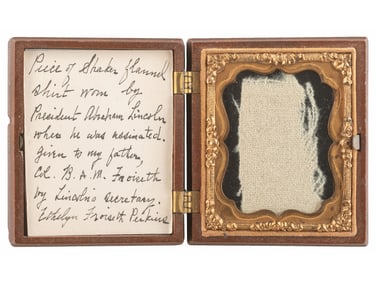 Piece of Shaker flannel
shirt worn by
President Abraham Lincoln
when he was assinated.
given to my father,
Col. B. A. M. Froiseth
by Lincoln's secretary.
Froiseth Perkins